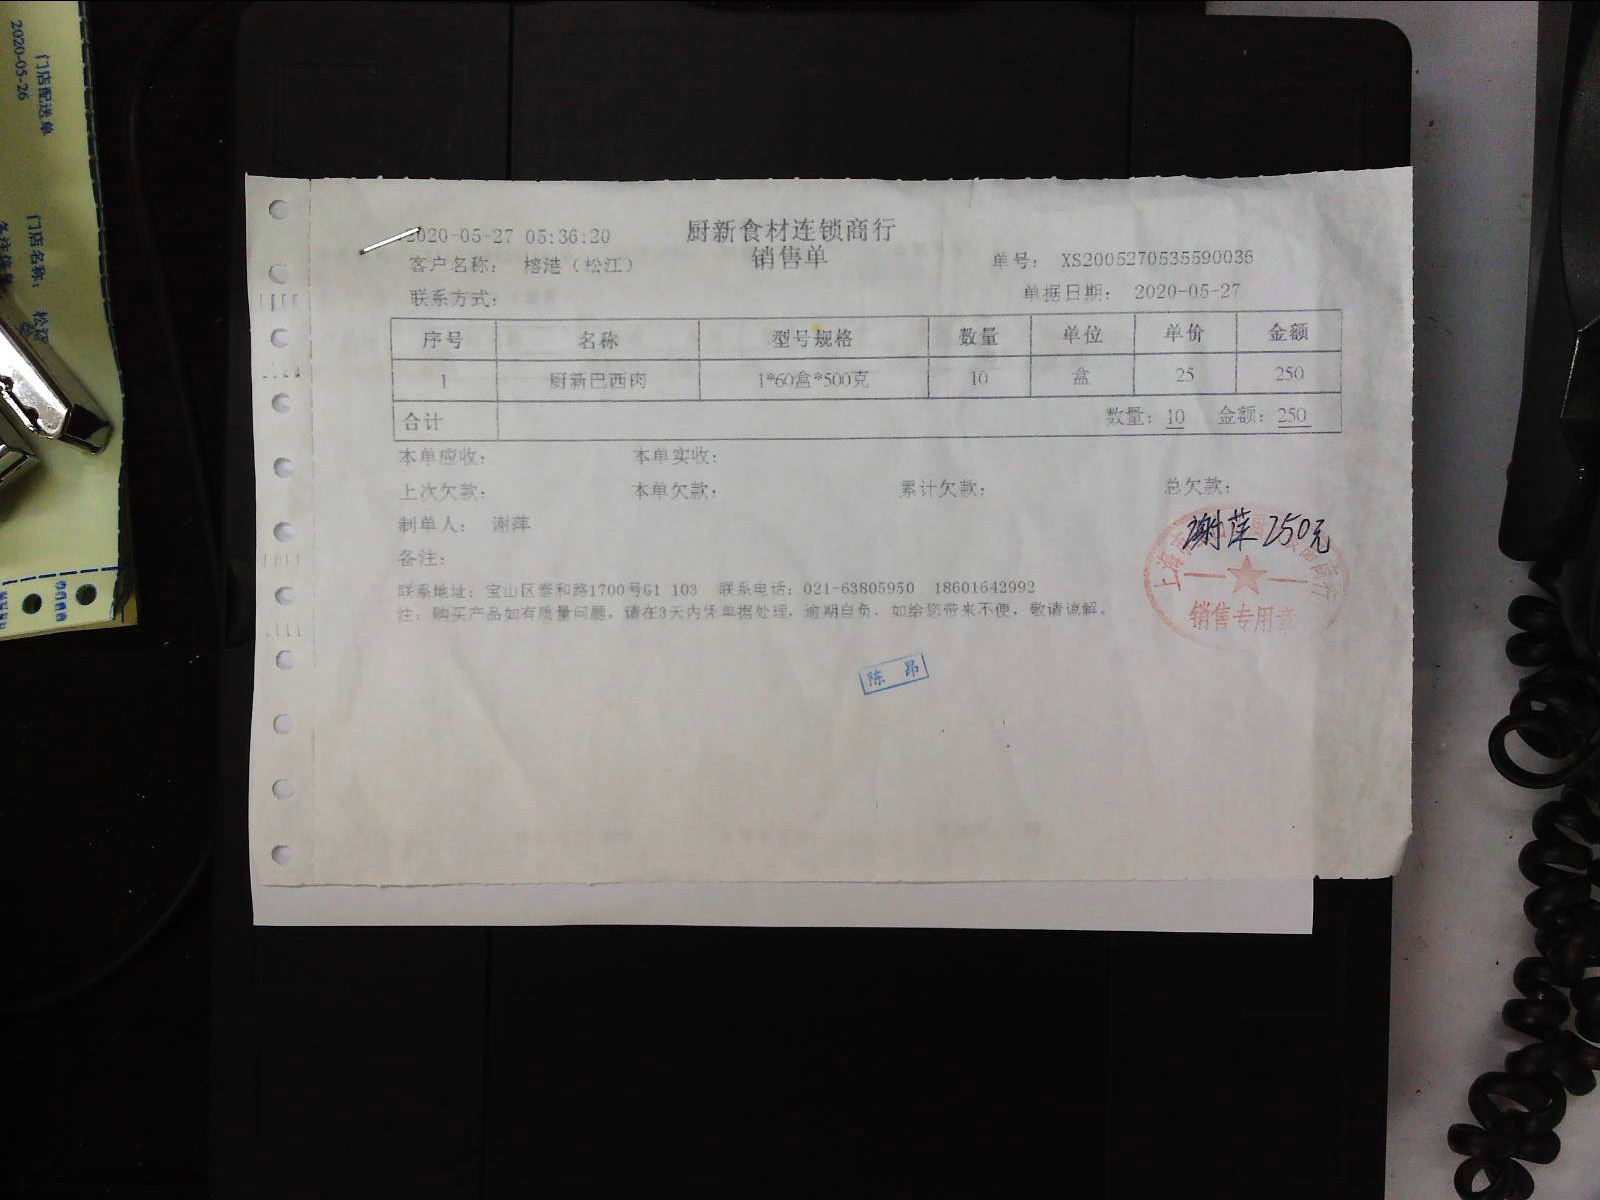 门店配送单
2020-05-26
门店名称: 松江
2020-05-27 05:36:20
厨新食材连锁商行
销售单
客户名称: 榕港（松江）
单号: XS2005270535590036
联系方式:
单据日期: 2020-05-27
序号 名称 型号规格 数量 单位 单价 金额
1 厨新巴西肉 1*60盒*500克 10 盒 25 250
合计 数量: 10 金额: 250
本单应收: 本单实收:
上次欠款: 本单欠款: 累计欠款: 总欠款:
制单人: 谢萍
谢萍 250元
备注:
联系地址: 宝山区泰和路1700号G1 103 联系电话: 021-63805950 18601642992
注: 购买产品如有质量问题, 请在3天内凭单据处理, 逾期自负, 如给您带来不便, 敬请谅解。
上海市
商行
销售专用章
陈昂